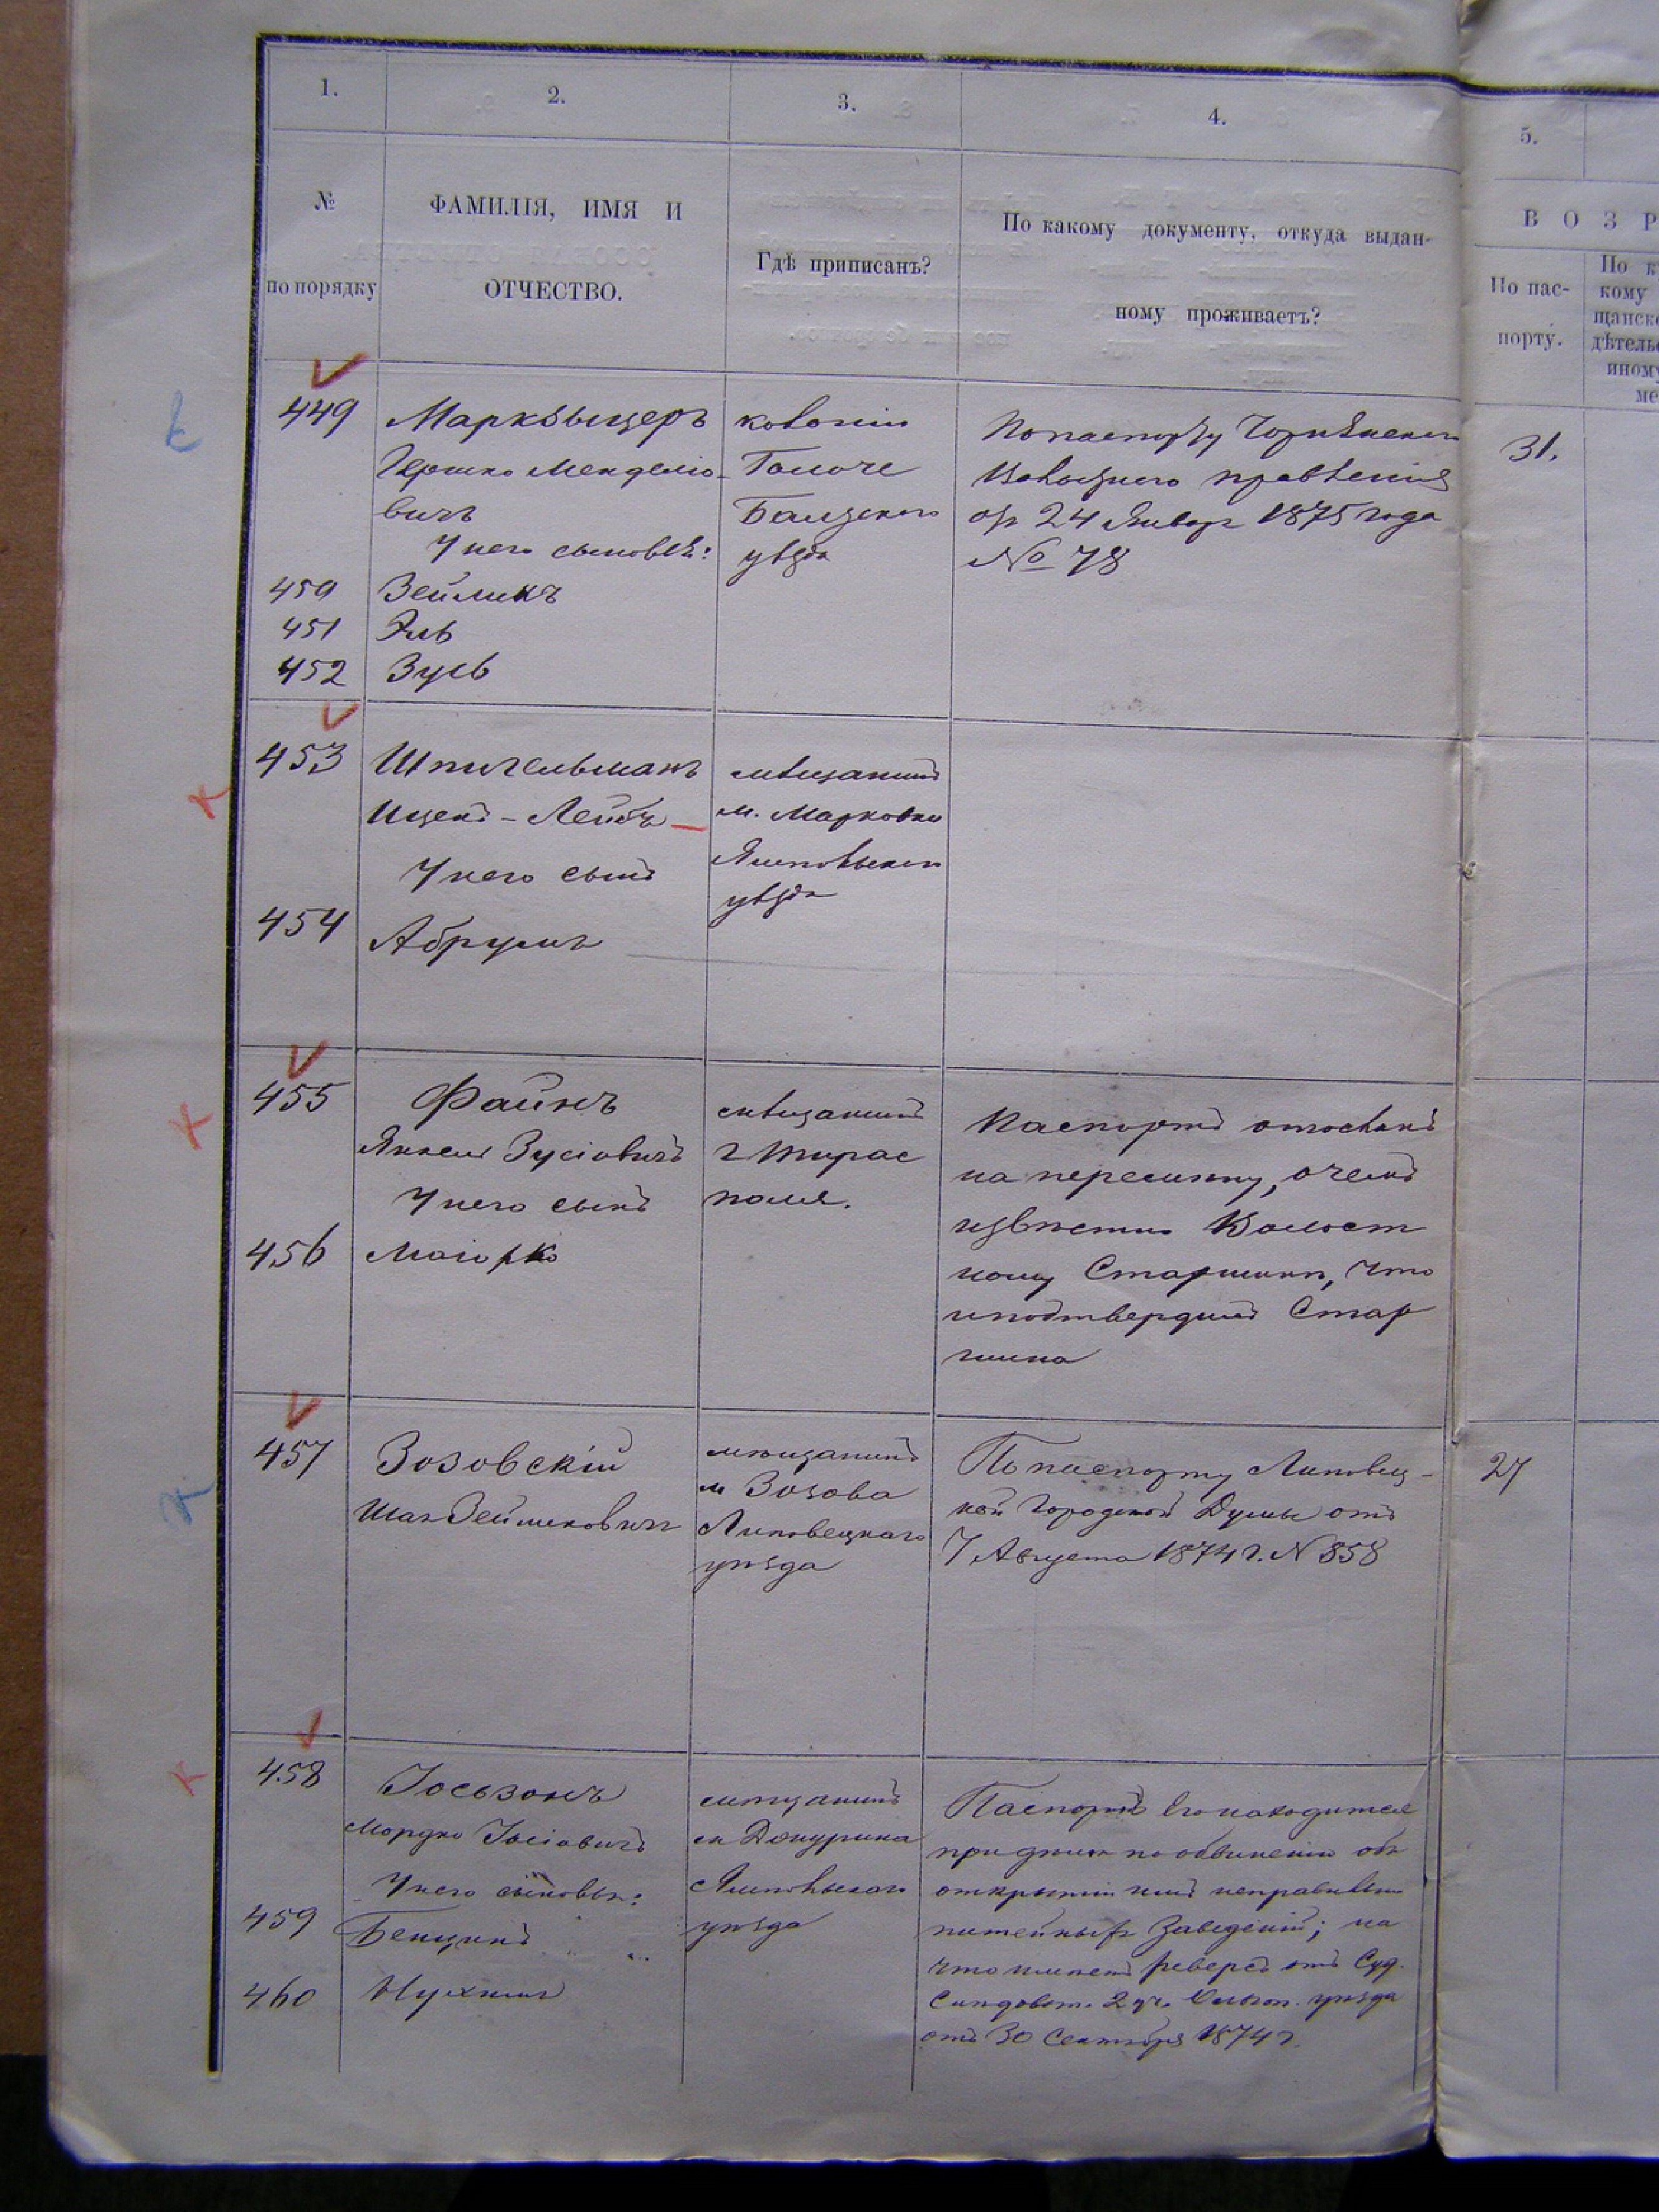 1.
2.
3.
4.
5.
№
по порядку
ФАМИЛІЯ, ИМЯ И
ОТЧЕСТВО.
Гдѣ приписанъ?
По какому документу, откуда выдан-
ному проживаетъ?
В О З Р
По пас-
порту.
По к
кому
щанско
дѣтель
иному
ме
449
Гершко Менделіо-
вичъ
У него сыновья:
459
Зейликъ
451
Эль
452
Зусь
колоніи
уѣзда
По паспорту
Волостного правленія
отъ 24 Января 1875 года
№ 78
31.
453
Шпигельманъ
Ицекъ-Лейбъ
У него сынъ
454
Абрумъ
мѣщанинъ
м. Марковки
Ямпольского
уѣзда
455
Файнъ
Янкель Зусіовичъ
У него сынъ
456
Маіорко
мѣщанинъ
г Тирас
поля.
Паспортъ отосланъ
на перемѣну, о чемъ
извѣстно Волост
ному Старшинѣ, что
и подтвердилъ Стар
шина
457
Зозовскій
Шая Зейликовичъ
мѣщанинъ
м Зозова
Липовецкаго
уѣзда
По паспорту Липовец-
кой Городской Думы отъ
7 Августа 1874 г. N 858
27
458
Іосьзонъ
Мордко Іосіовичъ
У него сыновья:
459
Бенціонъ
460
Нухимъ
мѣщанинъ
м
Ямпольскаго
уѣзда
Паспортъ его находится
при дѣлѣ по обвиненію объ
открытіи имъ неправильно
питейныхъ заведеній; на
что имѣетъ реверсъ отъ Суд.
Слѣдоват. 2 уч. уѣзда
отъ 30 Сентября 1874 г.